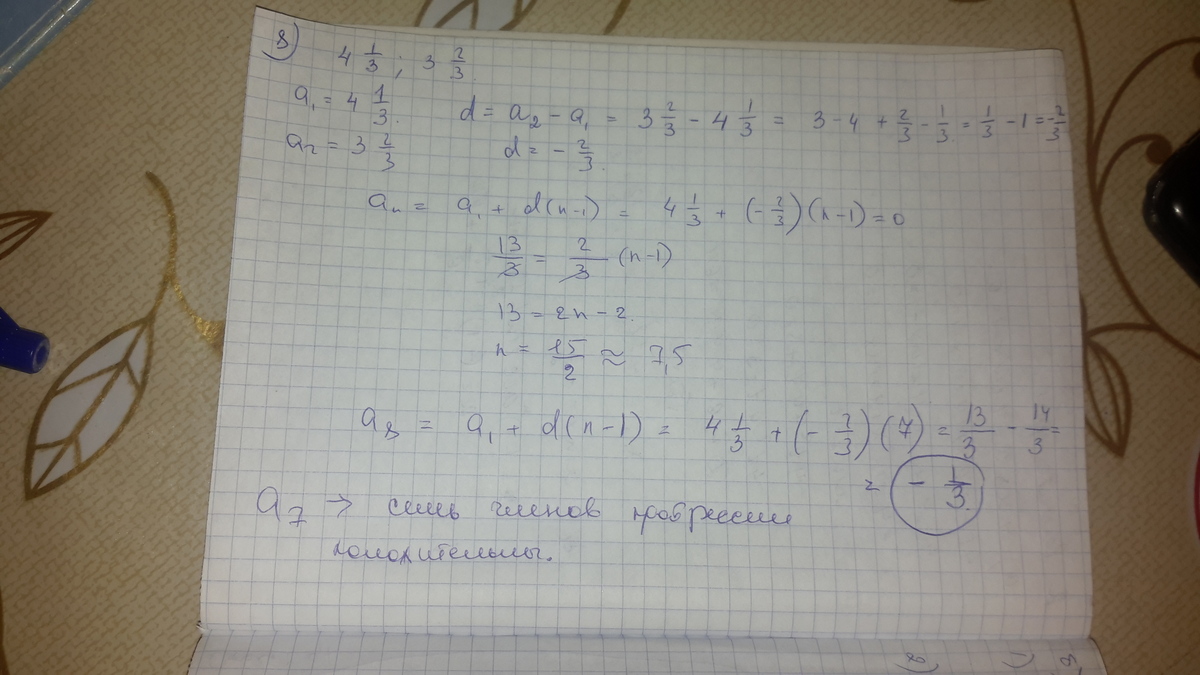 8) 4 1/3; 3 2/3.
a₁ = 4 1/3. d = a₂ - a₁ = 3 2/3 - 4 1/3 = 3 - 4 + 2/3 - 1/3 = 1/3 - 1 = -2/3
a₂ = 3 2/3 d = - 2/3.
aₙ = a₁ + d(n-1) = 4 1/3 + (-2/3)(n-1) = 0
13/3 = 2/3 (n-1)
13 = 2n - 2.
n = 15/2 ≈ 7,5
a₈ = a₁ + d(n-1) = 4 1/3 + (-2/3)(7) = 13/3 - 14/3 =
= - 1/3.
a₇ → семь членов прогрессии
положительны.